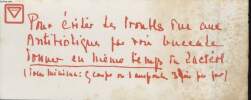 Pour éviter les troubles due aux
Antibiotique par voie buccale
donner en même temps du Lactéol
(Dose minima : 3 comp ou 1 ampoule 3 fois par jour)